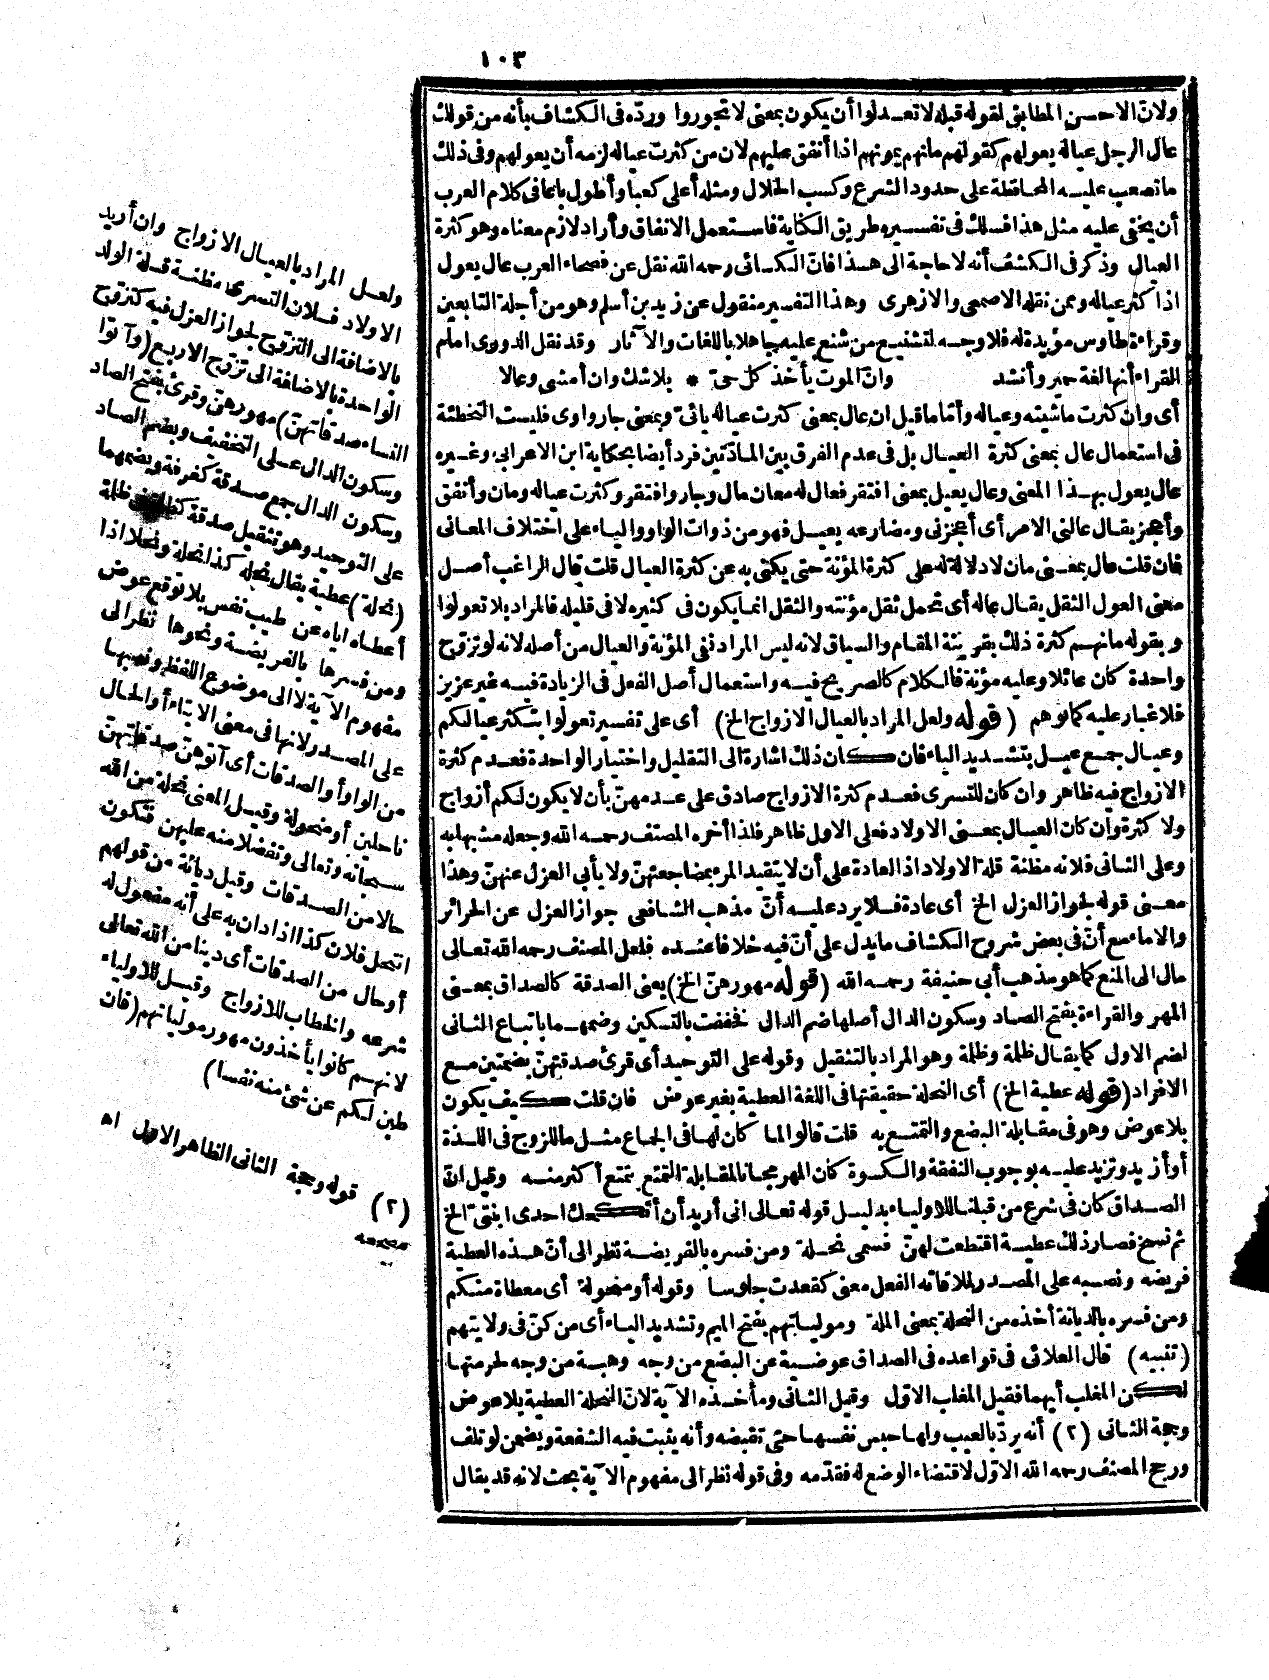 ١٠٣
ولان الاحسن المطابق لقوله قبله لا تعدلوا أن يكون بمعنى لا تجوروا ورده فى الكشاف بأنه من قولك
عال الرجل عياله يعولهم كقولهم مانهم يمونهم اذا أنفق عليهم لان من كثرت عياله لزمه أن يعولهم وفى ذلك
ما تصعب عليه المحافظة على حدود الشرع وكسب الحلال ومثله أعلى كعبا وأطول باعا فى كلام العرب
أن يخفى عليه مثل هذا فسلك فى تفسيره طريق الكناية فاستعمل الانفاق وأراد لازم معناه وهو كثرة
العيال وذكر فى الكشف أنه لا حاجة الى هذا فان الكسائى رحمه الله نقل عن فصحاء العرب عال يعول
اذا كثر عياله وممن نقله الاصمعى والازهرى وهذا التفسير منقول عن زيد بن أسلم وهو من أجلة التابعين
وقراءة طاوس مؤيدة له فلا وجه لتشنيع من شنع عليه جاهلا باللغات والآثار وقد نقل الدورى امام
القراء أنها لغة حمير وأنشد وانّ الموت يأخذ كل حىّ * بلا شك وان أمشى وعالا
أى وان كثرت ماشيته وعياله وأمّا ما قيل ان عال بمعنى كثرت عياله يائىّ وبمعنى جار واوى فليست التخطئة
فى استعمال عال بمعنى كثرة العيال بل فى عدم الفرق بين المادّتين فردّ أيضا بحكاية ابن الاعرابى وغيره
عال يعول بهذا المعنى وعال يعيل بمعنى افتقر فعال له معان مال وجار وافتقر وكثرت عياله ومان وأنفق
وأعجز يقال عالنى الامر أى أعجزنى ومضارعه يعيل فهو من ذوات الواو والياء على اختلاف المعانى
فان قلت عال بمعنى مان لا دلالة له على كثرة المؤنة حتى يكنى به عن كثرة العيال قلت قال الراغب أصل
معنى العول الثقل يقال عاله أى تحمل ثقل مؤنته والثقل انما يكون فى كثيره لا فى قليله فالمراد بلا تعولوا
وبقوله مانهم كثرة ذلك بقرينة المقام والسياق لانه ليس المراد نفى المؤنة والعيال من أصله لانه لو تزوّج
واحدة كان عائلا وعليه مؤنة فالكلام كالصريح فيه واستعمال أصل الفعل فى الزيادة فيه غير عزيز
فلا غبار عليه كما توهم (قوله ولعل المراد بالعيال الازواج الخ) أى على تفسير تعولوا بتكثر عيالكم
وعيال جمع عيل بتشديد الياء فان كان ذلك اشارة الى التقليل واختيار الواحدة فعدم كثرة
الازواج فيه ظاهر وان كان للتسرى فعدم كثرة الازواج صادق على عدمهنّ بأن لا يكون لكم أزواج
ولا كثرة وان كان العيال بمعنى الاولاد فعلى الاول ظاهر فلذا أخره المصنف رحمه الله وجعله مشبها به
وعلى الثانى فلانه مظنة قلة الاولاد اذ العادة على أن لا يتقيد المرء بمضاجعتهنّ ولا يأبى العزل عنهنّ وهذا
معنى قوله لجواز العزل الخ أى عادة فلا يرد عليه أنّ مذهب الشافعى جواز العزل عن الحرائر
والاماء مع أنّ فى بعض شروح الكشاف ما يدل على أنّ فيه خلافا عنده فلعل المصنف رحمه الله تعالى
مال الى المنع كما هو مذهب أبى حنيفة رحمه الله (قوله مهورهنّ الخ) يعنى الصدقة كالصداق بمعنى
المهر والقراءة بفتح الصاد وسكون الدال أصلها ضم الدال فخففت بالتسكين وضمهما باتباع الثانى
لضم الاول كما يقال ظلمة وظلمة وهو المراد بالتثقيل وقوله على التوحيد أى قرئ صدقتهنّ بضمتين مع
الافراد (قوله عطية الخ) أى النحلة حقيقتها فى اللغة العطية بغير عوض فان قلت كيف يكون
بلا عوض وهو فى مقابلة البضع والتمتع به قلت قالوا لما كان لها فى الجماع مثل ما للزوج فى اللذة
أو أزيد وتزيد عليه بوجوب النفقة والكسوة كان المهر مجانا لمقابلة التمتع بتمتع أكثر منه وقيل انّ
الصداق كان فى شرع من قبلنا للاولياء بدليل قوله تعالى انى أريد أن أنكحك احدى ابنتىّ الخ
ثم نسخ فصار ذلك عطية اقتطعت لهنّ فسمى نحلة ومن فسره بالفريضة نظر الى أنّ هذه العطية
فريضة ونصبه على المصدر لملاقاته الفعل معنى كقعدت جلوسا وقوله أو منحولة أى معطاة منكم
ومن فسره بالديانة أخذه من النحلة بمعنى الملة ومولياتهم بفتح الميم وتشديد الياء أى من كنّ فى ولايتهم
(تنبيه) قال العلائى فى قواعده فى الصداق عوضية عن البضع من وجه وهبة من وجه لحرمتها
لكن المغلب أيهما فقيل المغلب الاوّل وقيل الثانى ومأخذه الآية لانّ النحلة العطية بلا عوض
وحجة الثانى (٢) أنه يردّ بالعيب ولها حبس نفسها حتى تقبضه وأنه يثبت فيه الشفعة ويضمن لو تلف
ورجح المصنف رحمه الله الاوّل لاقتضاء الوضع له فقدّمه وفى قوله نظرا الى مفهوم الآية بحث لانه قد يقال
ولعل المراد بالعيال الازواج وان أريد
الاولاد فلان التسرى مظنة قلة الولد
بالاضافة الى التزوّج لجواز العزل فيه كتزوّج
الواحدة بالاضافة الى تزوّج الاربع (وآتوا
النساء صدقاتهنّ) مهورهنّ وقرئ بفتح الصاد
وسكون الدال على التخفيف وبضم الصاد
وسكون الدال جمع صدقة كغرفة وبضمهما
على التوحيد وهو تثقيل صدقة كظلمة فى ظلمة
(نحلة) عطية يقال نحله كذا نحلة ونحلا اذا
أعطاه اياه عن طيب نفس بلا توقع عوض
ومن فسرها بالفريضة ونحوها نظر الى
مفهوم الآية لا الى موضوع اللفظ ونصبها
على المصدر لانها فى معنى الايتاء أو الحال
من الواو أو الصدقات أى آتوهنّ صدقاتهنّ
ناحلين أو منحولة وقيل المعنى نحلة من الله
سبحانه وتعالى وتفضلا منه عليهن فتكون
حالا من الصدقات وقيل ديانة من قولهم
انتحل فلان كذا اذا دان به على أنه مفعول له
أو حال من الصدقات أى دينا من الله تعالى
شرعه والخطاب للازواج وقيل للاولياء
لانهم كانوا يأخذون مهور مولياتهم (فان
طبن لكم عن شئ منه نفسا)
(٢) قوله وحجة الثانى الظاهر الاول اه
مصححه